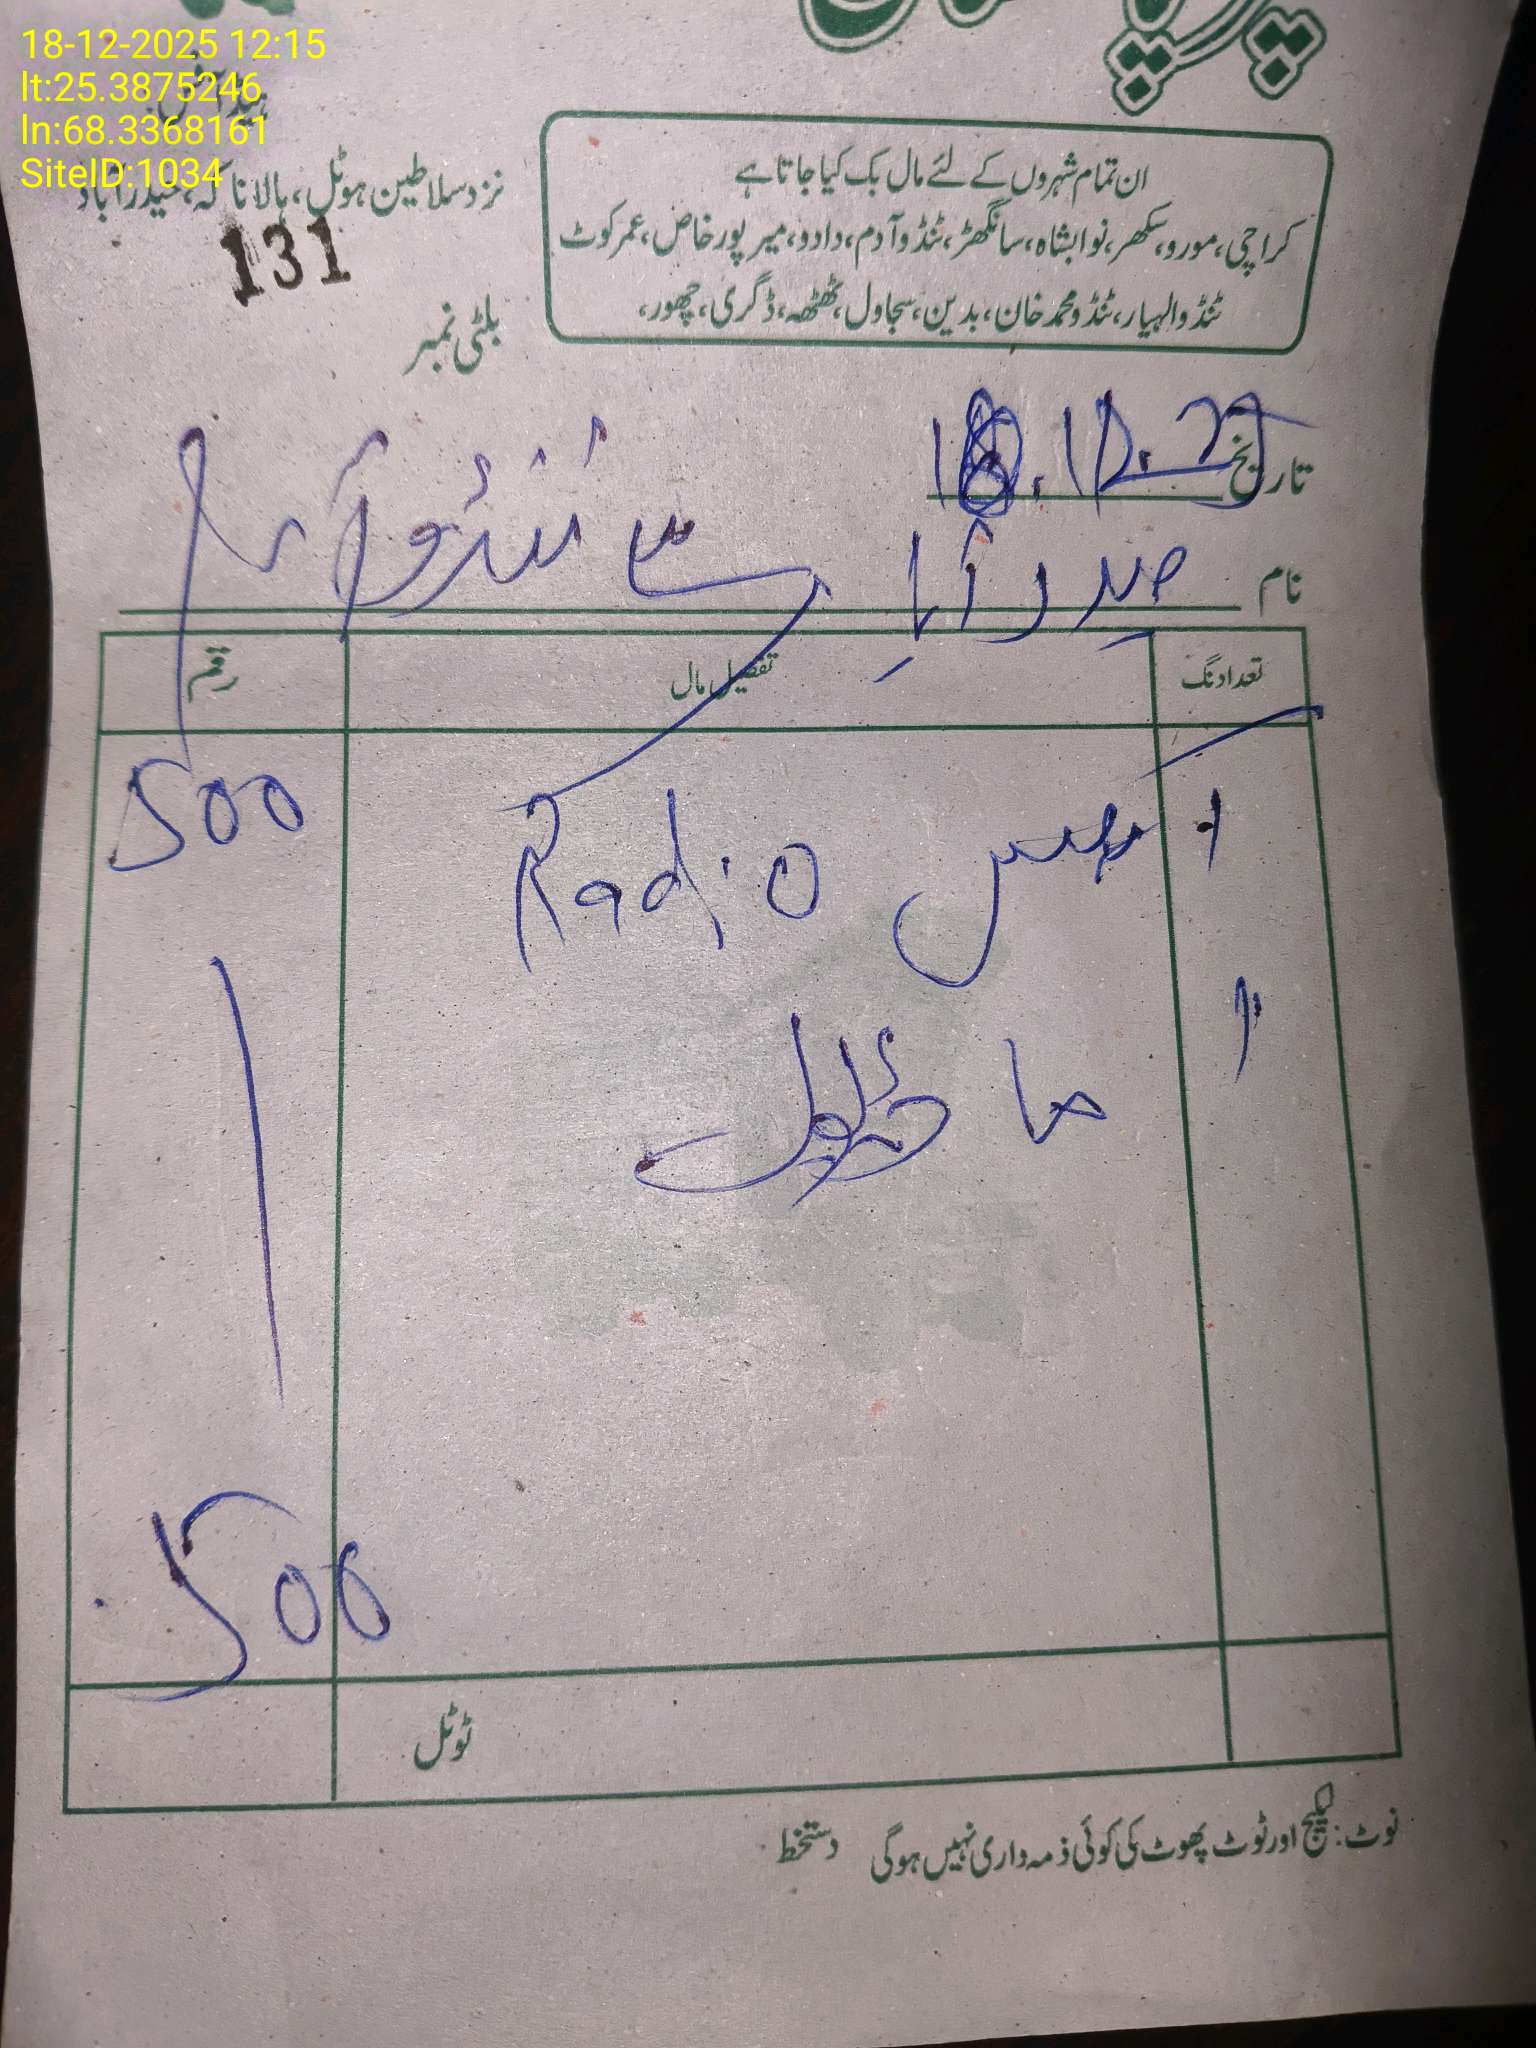 18-12-2025 12:15
lt:25.3875246
ln:68.3368161
SiteID:1034
ہیڈ آفس:
نزد سلاطین ہوٹل، ہالا ناکہ، حیدرآباد
131
بلٹی نمبر
ان تمام شہروں کے لئے مال بک کیا جاتا ہے
کراچی، مورو، سکھر، نوابشاہ، سانگھڑ، ٹنڈوآدم، دادو، میرپورخاص، عمرکوٹ
ٹنڈوالہیار، ٹنڈومحمد خان، بدین، سجاول، ٹھٹھہ، ڈگری، چھور،
تاریخ 18.12.25
نام حیدرآباد سے ٹنڈوآدم
تعدادنگ تفصیل مال رقم
1 Radio 500
1
500
ٹوٹل
نوٹ: لیکیج اور ٹوٹ پھوٹ کی کوئی ذمہ داری نہیں ہوگی دستخط